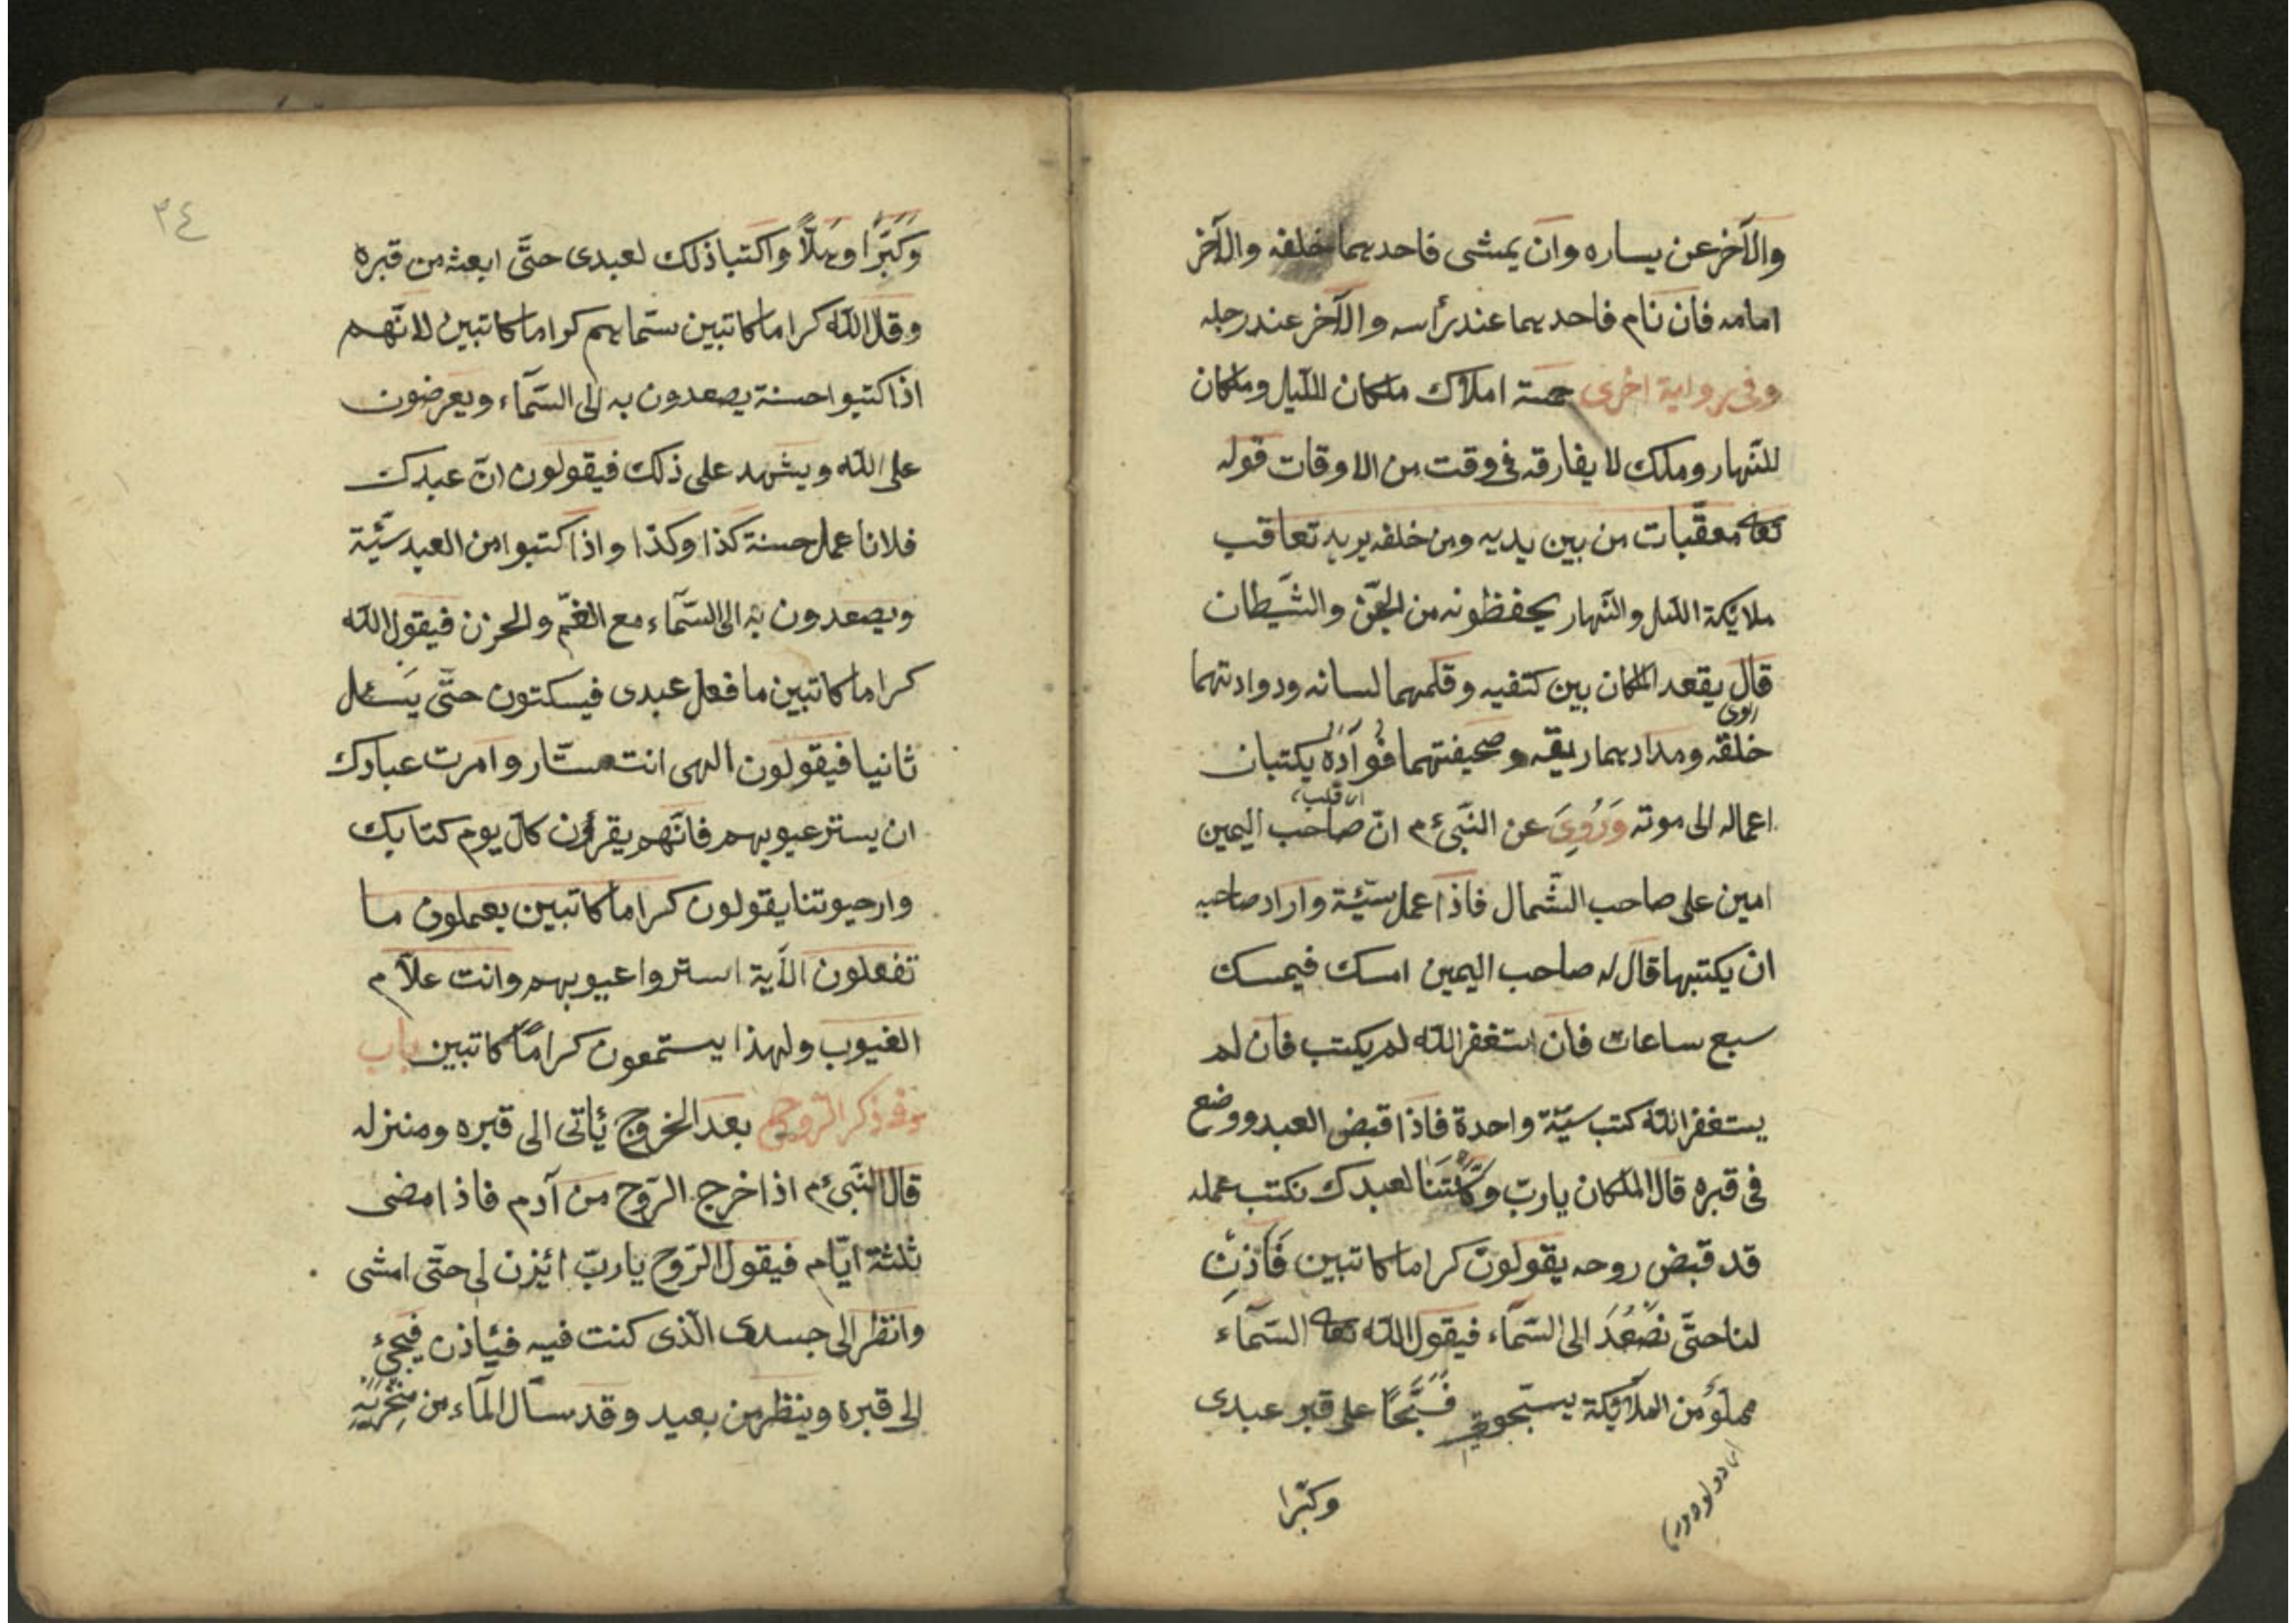 والآخر عن يساره وان يمشى فاحدهما خلفه والآخر
امامه فان نام فاحدهما عند رأسه والآخر عند رجله
وفى رواية اخرى خمسة املاك ملكان لليل وملكان
للنهار وملك لا يفارقه فى وقت من الاوقات قوله
تعالى معقّبات من بين يديه ومن خلفه يريد تعاقب
ملائكة الليل والنّهار يحفظونه من الجنّ والشّيطان
قال يقعد الملكان بين كتفيه وقلمهما لسانه ودواتهما
خلقه ومدادهما ريقه وصحيفتهما فؤاده يكتبان
اى قلب
اعماله الى موته وَرُوِىَ عن النّبىّ عم انّ صاحب اليمين
امين على صاحب الشّمال فاذا عمل سيّئة واراد صاحبه
ان يكتبها قال له صاحب اليمين امسك فيمسك
سبع ساعات فان استغفر الله لم يكتب فان لم
يستغفر الله كتب سيّئة واحدة فاذا قبض العبد ووضع
فى قبره قال الملكان يا ربّ وكّلتنا لعبدك نكتب عمله
قد قبض روحه يقولون كراما كاتبين فَأْذَنْ
لنا حتّى نَصْعُدَ الى السّمآء فيقول الله تعالى السّمآء
مملوٌّ من الملآئكة يسبّحون فسَبِّحَا على قبر عبدى
وكبّرا
٣٤
وَكَبِّرَا وهلّلا واكتبا ذلك لعبدى حتّى ابعثه من قبره
وقال الله كراما كاتبين سمّاهم كراما كاتبين لانّهم
اذا كتبوا حسنة يصعدون به الى السّمآء ويعرضون
على الله ويشهد على ذلك فيقولون انّ عبدك
فلانا عمل حسنة كذا وكذا واذا كتبوا من العبد سيّئة
ويصعدون به الى السّمآء مع الغمّ والحزن فيقول الله
كراما كاتبين ما فعل عبدى فيسكتون حتّى يَسئل
ثانيا فيقولون الهى انت ستّار وامرت عبادك
ان يستر عيوبهم فانّهم يقرؤن كلّ يوم كتابك
وارحيوتنا يقولون كراما كاتبين يعملون ما
تفعلون الآية استروا عيوبهم وانت علّام
الغيوب ولهذا يستمعون كرامًا كاتبين باب
فى ذكر الرّوح بعد الخروج يأتى الى قبره ومنزله
قال النّبىّ عم اذا خرج الرّوح من آدم فاذا مضى
ثلثة ايّام فيقول الرّوح يا ربّ ائزن لى حتّى امشى
وانظر الى جسدى الّذى كنت فيه فيأذن فيجئ
الى قبره وينظر من بعيد وقد سال المآء من مِنْخَرَيْهِ